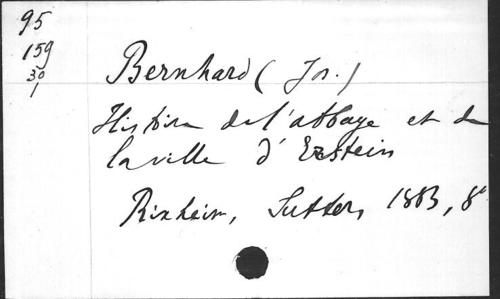 95
159
30
1
Bernhard ( Jos. )
Histoire de l'abbaye et de
la ville d'Erstein
Rixheim, Sutter, 1883, 8°